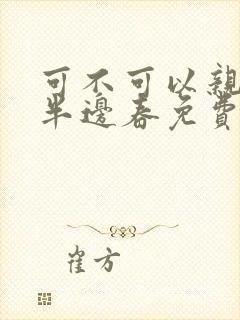 可不可以親
半邊春免費
崔方